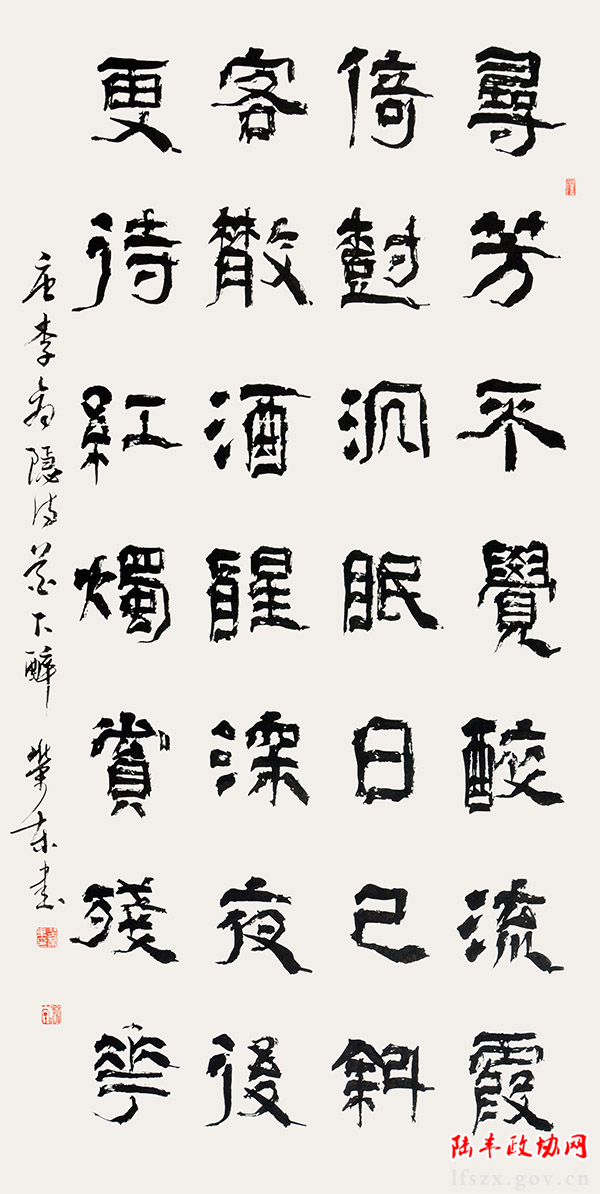 尋芳不覺醉流霞
倚樹沉眠日已斜
客散酒醒深夜後
更待紅燭賞殘華
唐李商隱詩花下醉 榮东书
陆丰政协网
lfszx.gov.cn